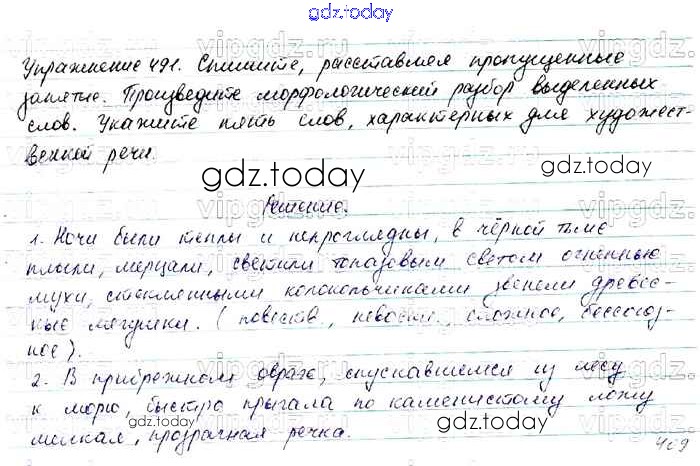 gdz.today
Упражнение 491. Спишите, расставляя пропущенные
запятые. Произведите морфологический разбор выделенных
слов. Укажите пять слов, характерных для художест-
венной речи.
gdz.today
gdz.today
Решение.
1. Ночи были теплы и непроглядны, в чёрной тьме
плыли, мерцали, светили топазовым светом огненные
мухи, стеклянными колокольчиками звенели древес-
ные лягушки. (повеств., невоскл., сложное, бессоюз-
ное).
2. В прибрежном овраге, спускавшемся из лесу
к морю, быстро прыгала по каменистому ложу
gdz.today
gdz.today
мелкая, прозрачная речка.
409